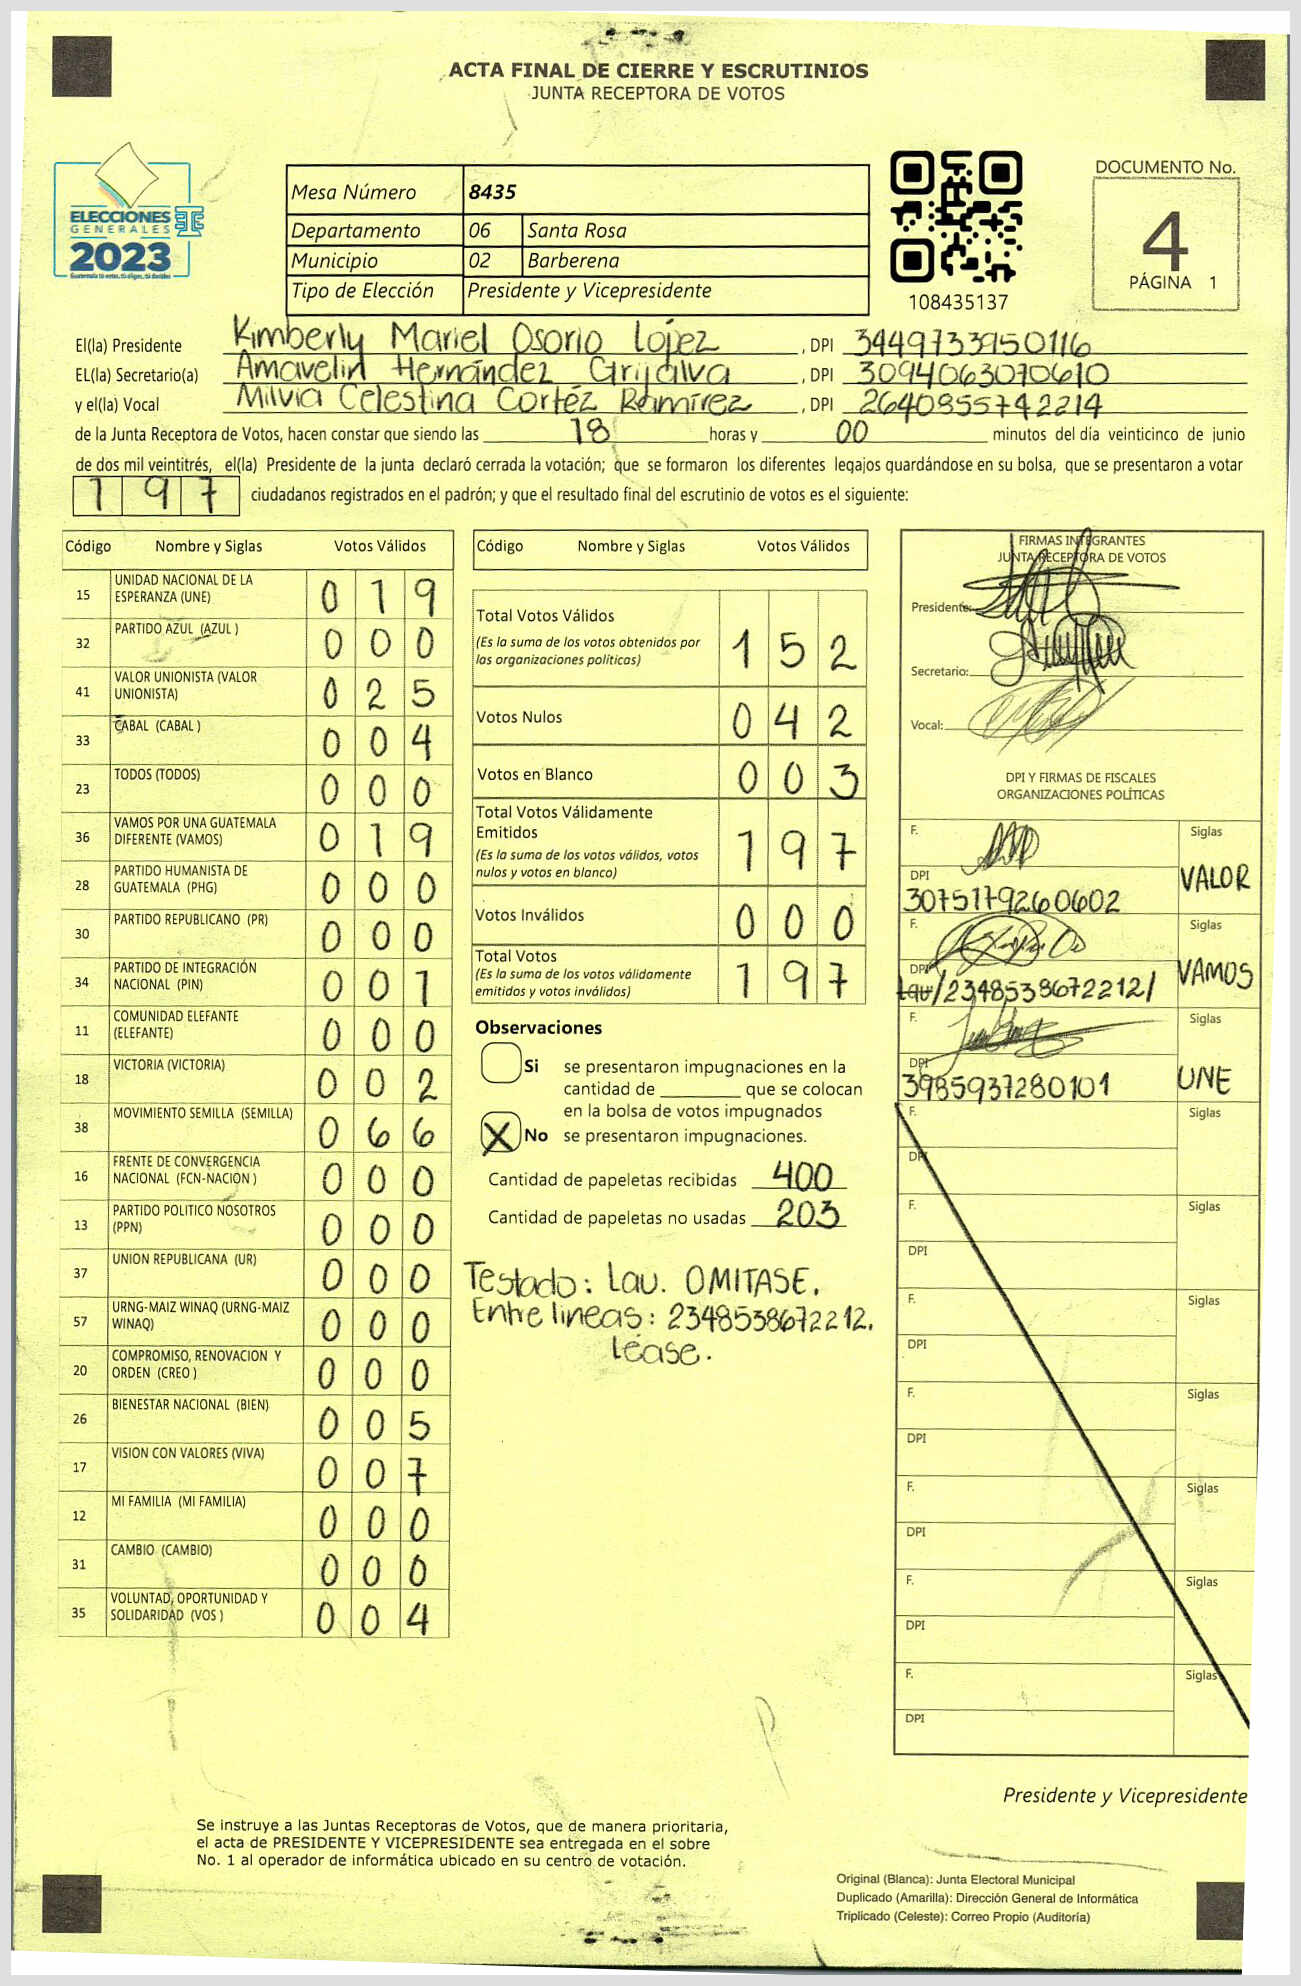 ACTA FINAL DE CIERRE Y ESCRUTINIOS
JUNTA RECEPTORA DE VOTOS
ELECCIONES
GENERALES
2023
Mesa Número 8435
Departamento 06 Santa Rosa
Municipio 02 Barberena
Tipo de Elección Presidente y Vicepresidente
108435137
DOCUMENTO No.
4
PÁGINA 1
El(la) Presidente Kimberly Mariel Osorio López, DPI 3449733950116
EL(la) Secretario(a) Amavelin Hernández Grijalva, DPI 3094063070610
y el(la) Vocal Milvia Celestina Cortéz Ramírez, DPI 2640855742214
de la Junta Receptora de Votos, hacen constar que siendo las 18 horas y 00 minutos del día veinticinco de junio
de dos mil veintitrés, el(la) Presidente de la junta declaró cerrada la votación; que se formaron los diferentes legajos guardándose en su bolsa, que se presentaron a votar
197 ciudadanos registrados en el padrón; y que el resultado final del escrutinio de votos es el siguiente:
Código Nombre y Siglas Votos Válidos
15 UNIDAD NACIONAL DE LA ESPERANZA (UNE) 019
32 PARTIDO AZUL (AZUL ) 000
41 VALOR UNIONISTA (VALOR UNIONISTA) 025
33 CABAL (CABAL ) 004
23 TODOS (TODOS) 000
36 VAMOS POR UNA GUATEMALA DIFERENTE (VAMOS) 019
28 PARTIDO HUMANISTA DE GUATEMALA (PHG) 000
30 PARTIDO REPUBLICANO (PR) 000
34 PARTIDO DE INTEGRACIÓN NACIONAL (PIN) 001
11 COMUNIDAD ELEFANTE (ELEFANTE) 000
18 VICTORIA (VICTORIA) 002
38 MOVIMIENTO SEMILLA (SEMILLA) 066
16 FRENTE DE CONVERGENCIA NACIONAL (FCN-NACION ) 000
13 PARTIDO POLITICO NOSOTROS (PPN) 000
37 UNION REPUBLICANA (UR) 000
57 URNG-MAIZ WINAQ (URNG-MAIZ WINAQ) 000
20 COMPROMISO, RENOVACION Y ORDEN (CREO ) 000
26 BIENESTAR NACIONAL (BIEN) 005
17 VISION CON VALORES (VIVA) 007
12 MI FAMILIA (MI FAMILIA) 000
31 CAMBIO (CAMBIO) 000
35 VOLUNTAD, OPORTUNIDAD Y SOLIDARIDAD (VOS ) 004
Código Nombre y Siglas Votos Válidos
Total Votos Válidos 152
(Es la suma de los votos obtenidos por
las organizaciones políticas)
Votos Nulos 042
Votos en Blanco 003
Total Votos Válidamente
Emitidos 197
(Es la suma de los votos válidos, votos
nulos y votos en blanco)
Votos Inválidos 000
Total Votos 197
(Es la suma de los votos válidamente
emitidos y votos inválidos)
Observaciones
Si se presentaron impugnaciones en la
cantidad de ________ que se colocan
en la bolsa de votos impugnados
X No se presentaron impugnaciones.
Cantidad de papeletas recibidas 400
Cantidad de papeletas no usadas 203
Testado: Lau. OMITASE.
Entre lineas: 2348538672212.
Léase.
FIRMAS INTEGRANTES
JUNTA RECEPTORA DE VOTOS
Presidente:
Secretario:
Vocal:
DPI Y FIRMAS DE FISCALES
ORGANIZACIONES POLÍTICAS
F. Siglas
DPI 3075179260602 VALOR
F. Siglas
DPI /2348538672212/ VAMOS
F. Siglas
DPI 3985937280101 UNE
F. Siglas
DPI
F. Siglas
DPI
F. Siglas
DPI
F. Siglas
DPI
F. Siglas
DPI
F. Siglas
DPI
F. Siglas
DPI
Presidente y Vicepresidente
Se instruye a las Juntas Receptoras de Votos, que de manera prioritaria,
el acta de PRESIDENTE Y VICEPRESIDENTE sea entregada en el sobre
No. 1 al operador de informática ubicado en su centro de votación.
Original (Blanca): Junta Electoral Municipal
Duplicado (Amarilla): Dirección General de Informática
Triplicado (Celeste): Correo Propio (Auditoría)